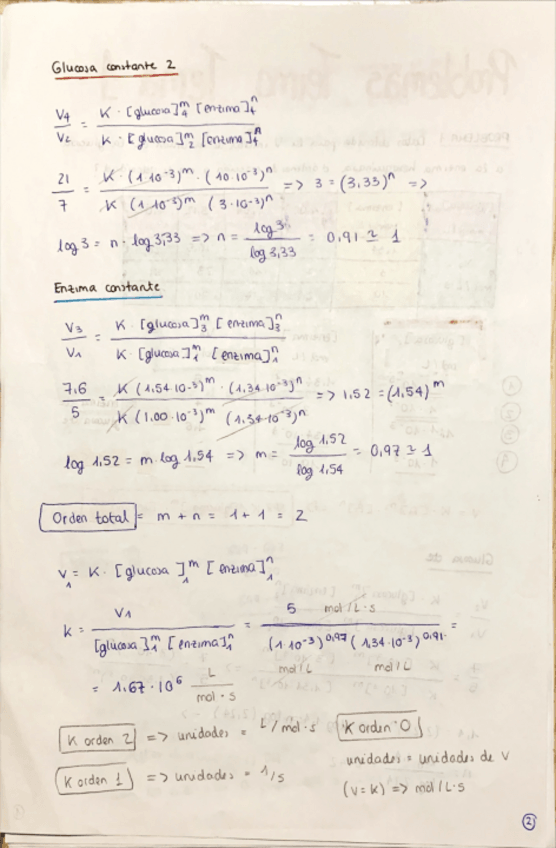 Glucosa constante 2
V4/V2 = K · [glucosa]4^m [enzima]4^n / K · [glucosa]2^m [enzima]4^n
21/7 = K · (1·10^-3)^m · (10·10^-3)^n / K (1·10^-3)^m (3·10^-3)^n => 3 = (3,33)^n =>
log 3 = n · log 3,33 => n = log 3 / log 3,33 = 0,91 ≃ 1
Enzima constante
V3/V1 = K · [glucosa]3^m [enzima]3^n / K · [glucosa]1^m [enzima]1^n
7,6/5 = K (1,54·10^-3)^m · (1,34·10^-3)^n / K (1,00·10^-3)^m (1,34·10^-3)^n => 1,52 = (1,54)^m
log 1,52 = m · log 1,54 => m = log 1,52 / log 1,54 = 0,97 ≃ 1
Orden total = m + n = 1 + 1 = 2
V1 = K · [glucosa]1^m [enzima]1^n
k = V1 / [glucosa]1^m [enzima]1^n = 5 mol/L·s / (1·10^-3)^0,97 (1,34·10^-3)^0,91 =
mol/L mol/L
= 1,67·10^6 L / mol·s
K orden 2 => unidades = L/mol·s
K orden 0
K orden 1 => unidades = 1/s
unidades = unidades de V
(V=K) => mol/L·s
2